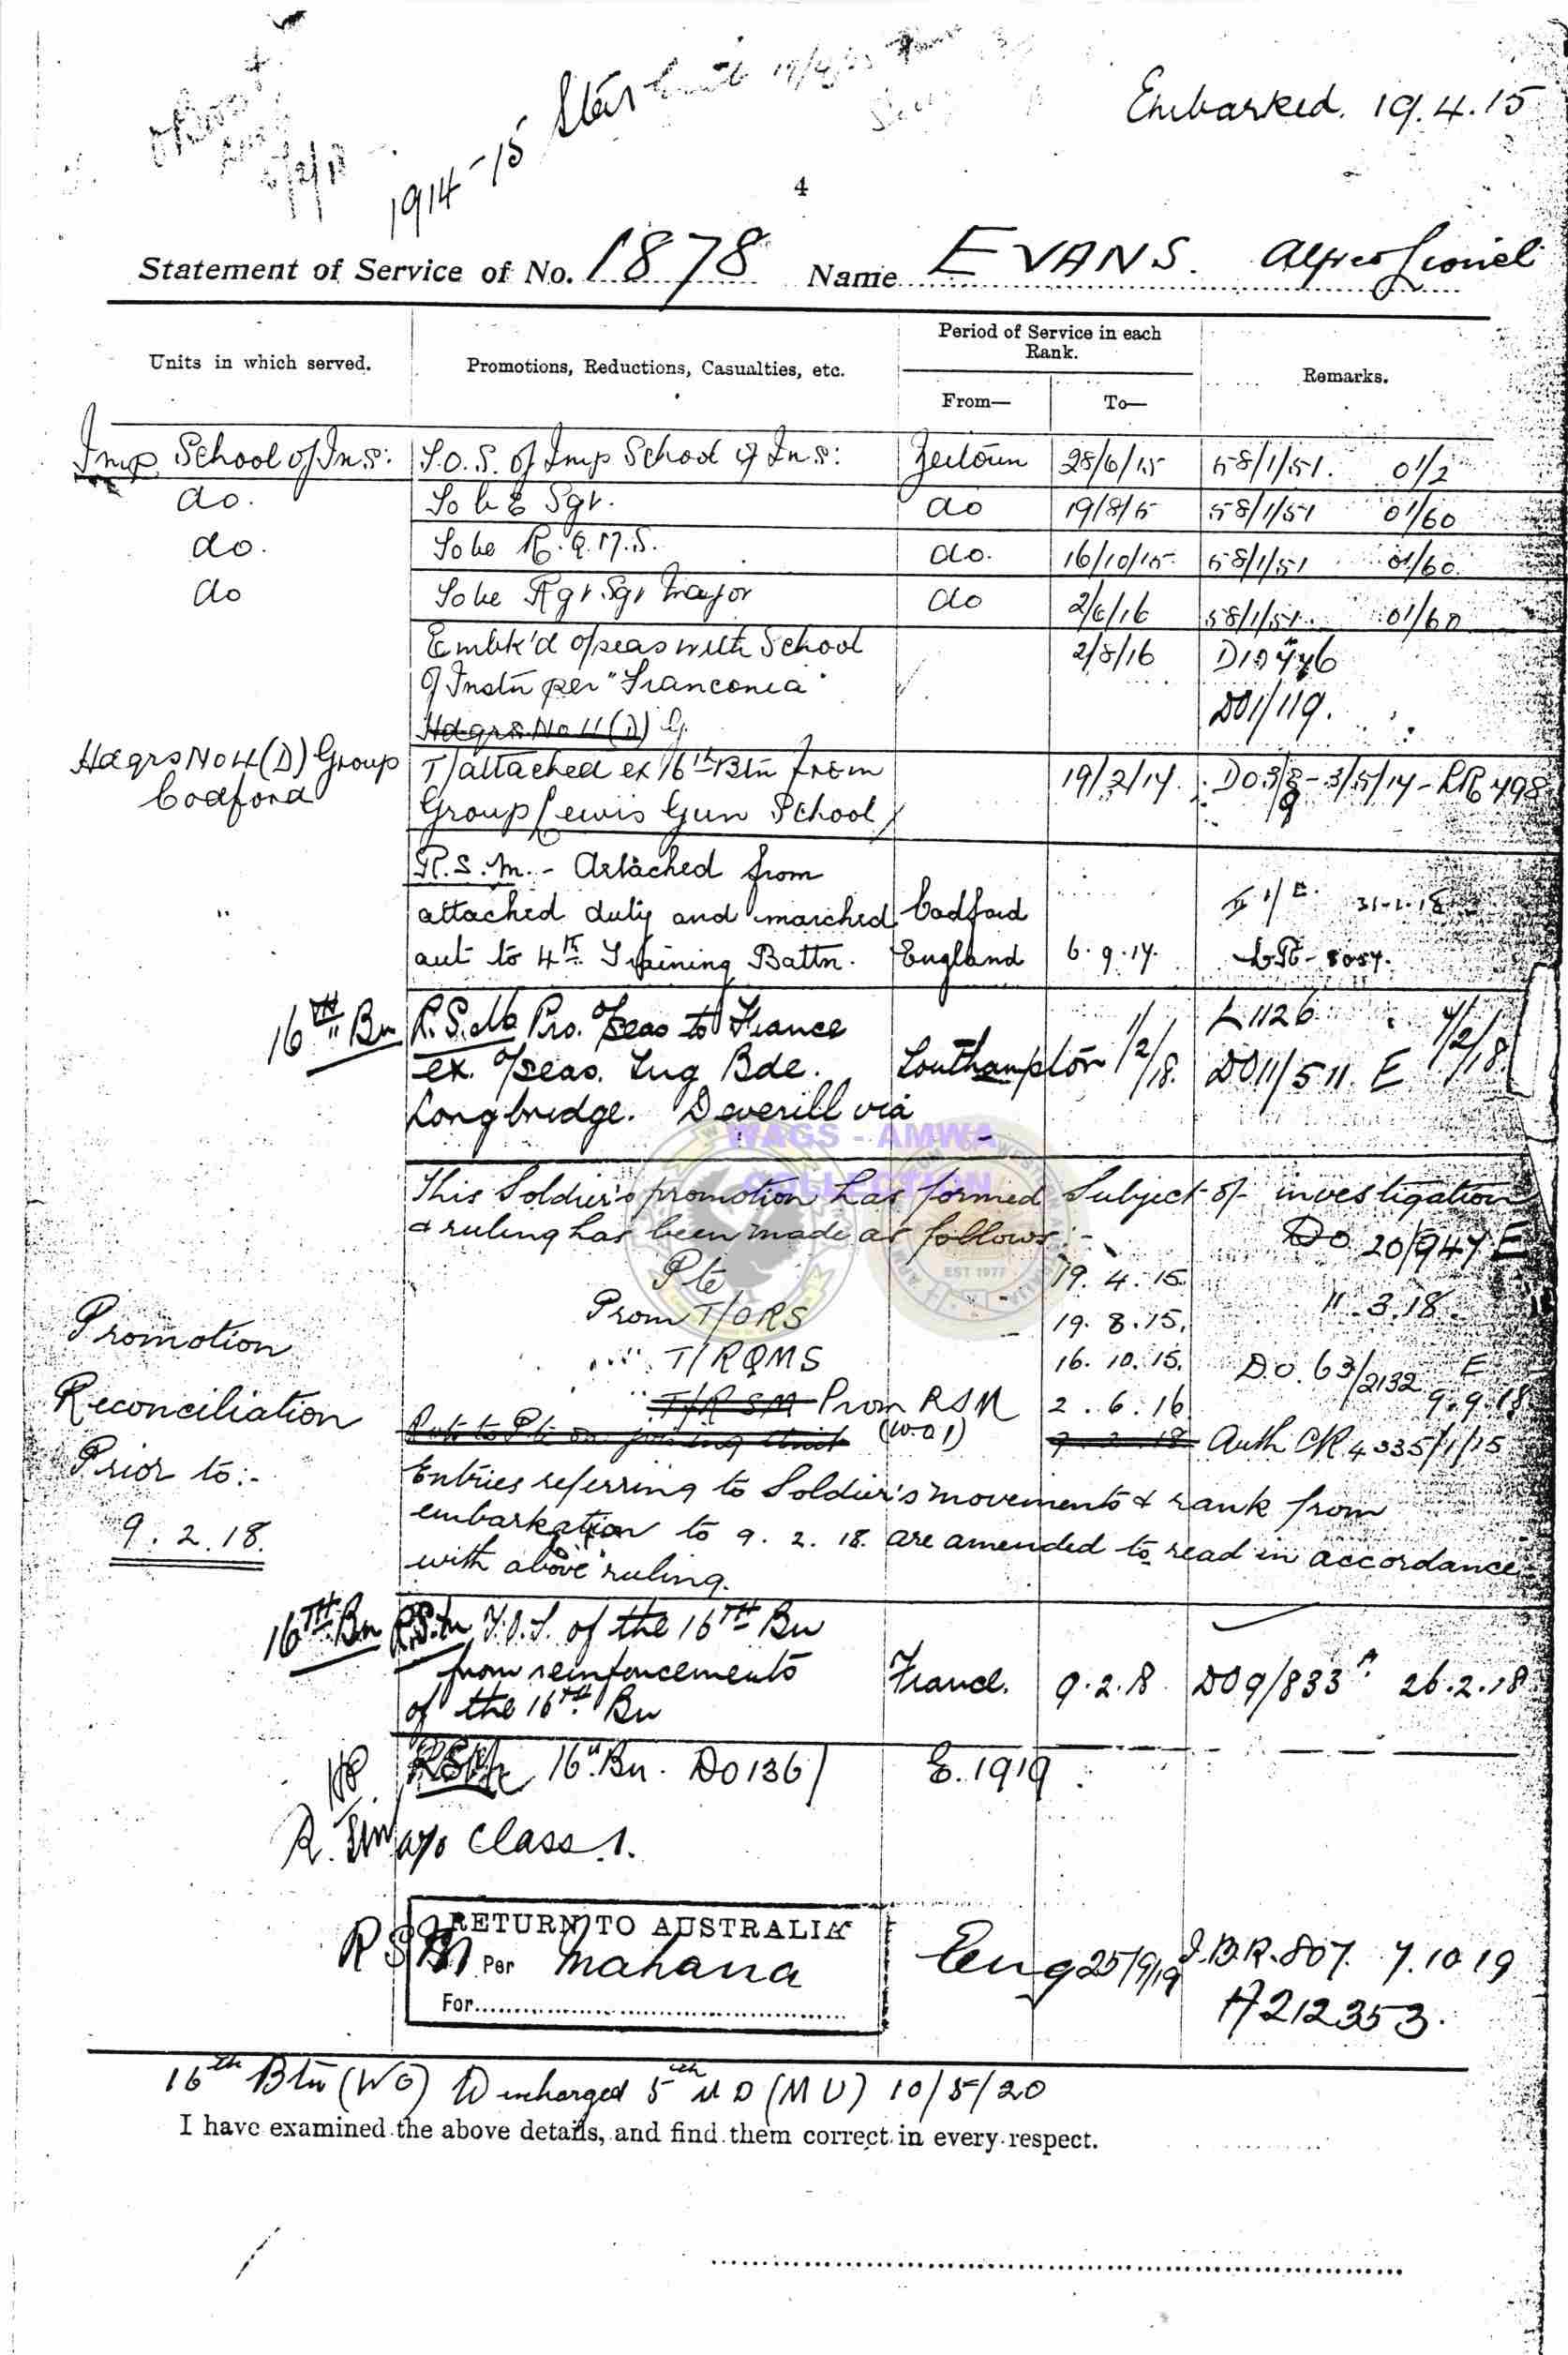 1914-15 Star
Embarked. 19.4.15
4
Statement of Service of No. 1878 Name EVANS. Alfred Lionel
Units in which served.
Promotions, Reductions, Casualties, etc.
Period of Service in each
Rank.
From—
To—
Remarks.
Imp School of Ins: T.O.S. of Imp School of Ins: Zeitoun 28/6/15 58/1/51. 01/2
do. To be E Sgt. do 19/8/15 58/1/51 01/60
do. To be R.Q.M.S. do. 16/10/15 58/1/51 01/60
do To be Rgt. Sgt Major do 2/6/16 58/1/51 01/60
Embk'd o/seas with School 2/8/16
of Instn per "Franconia"
DO1/119.
Hdqrs No 4 (D) G
Hdqrs No 4 (D) Group
Codford
T/attached ex 16th Btn from 19/2/17.
Group Lewis Gun School
" R.S.M. - Detached from
attached duty and marched Codford
out to 4th Training Battn. England 6.9.17.
16th Bn R.S.M. Pro. O/seas to France L1126
ex. O/seas. Trg Bde. Southampton 1/2/18. DO11/511. E
Longbridge. Deverill via
WAGS - AMWA
COLLECTION
EST 1977
This Soldier's promotion has formed Subject of investigation
& ruling has been made as follows:- DO 20/947 E
Pte 19.4.15. 11.3.18.
Prom T/ORS 19.8.15.
" T/RQMS 16.10.15. D.O. 63/2132 E
9.9.18
" T/RSM Prom RSM 2.6.16
(W.O 1)
Auth CR 4335/1/15
Promotion
Reconciliation
Prior to:-
9.2.18.
Entries referring to Soldier's movements & rank from
embarkation to 9.2.18. are amended to read in accordance
with above ruling.
16TH Bn R.S.M. T.O.S. of the 16TH Bn
from reinforcements France. 9.2.18. DO9/833 26.2.18
of the 16TH Bn
16th Bn. DO1361 E. 1919
Class 1.
RSM RETURN TO AUSTRALIA
Per Mahana Eng 25/9/19 7.10.19
For
A212353.
16th Btn (WO) Discharged 5th M D (MU) 10/5/20
I have examined the above details, and find them correct in every respect.